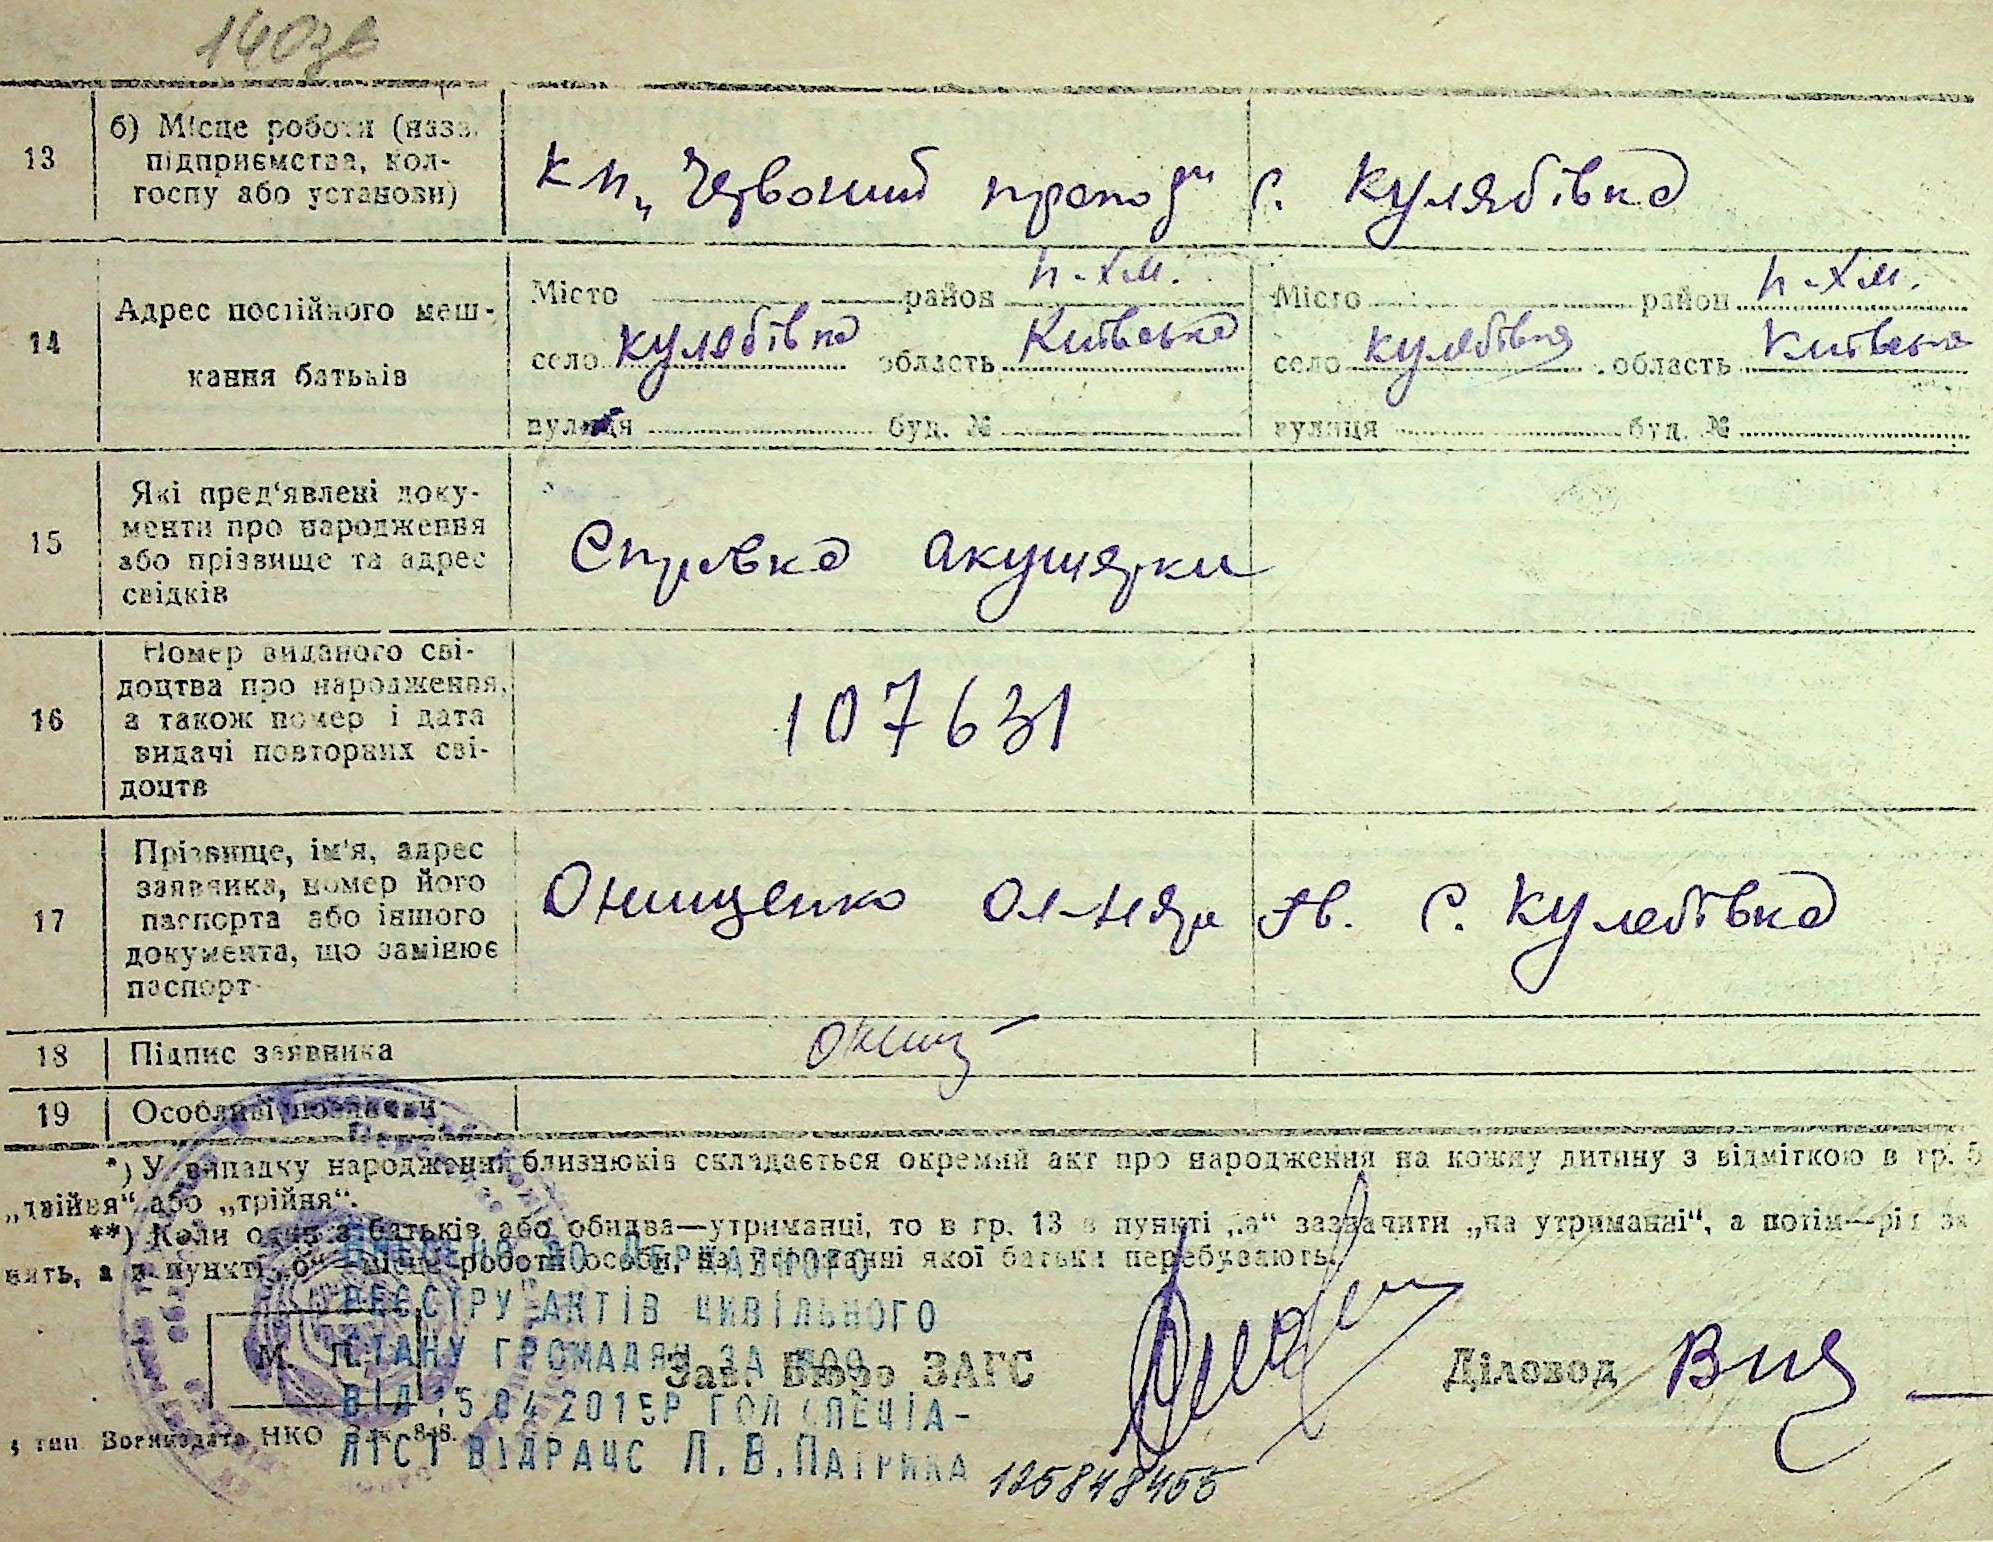 140зв
13
б) Місце роботи (назв.
підприємства, кол-
госпу або установи)
К-п „Червоний прапор" с. Кулябівка
14
Адрес постійного меш-
кання батьків
Місто район п-Хм.
село Кулябівка область Київська
вулиця буд. №
Місто район п-Хм.
село Кулябівка область Київська
вулиця буд. №
15
Які пред'явлені доку-
менти про народження
або прізвище та адрес
свідків
Справка акушерки
16
Номер виданого сві-
доцтва про народження,
а також номер і дата
видачі повторних сві-
доцтв
107631
17
Прізвище, ім'я, адрес
заявника, номер його
паспорта або іншого
документа, що замінює
паспорт
Онищенко с. Кулябівка
18
Підпис заявника
Онищ
19
Особливі позначки
*) У випадку народження близнюків складається окремий акт про народження на кожну дитину з відміткою в гр. 5
„двійня“ або „трійня“.
**) Коли один з батьків або обидва—утриманці, то в гр. 13 в пункті „а“ зазначити „на утриманні“, а потім—рід за
нять, а в пункті „б“—місце роботи особи, на утриманні якої батьки перебувають.
ВНЕСЕНО ДО ДЕРЖАВНОГО
РЕЄСТРУ АКТІВ ЦИВІЛЬНОГО
СТАНУ ГРОМАДЯН ЗА
ВІД 15 04 2015Р ГОЛ СПЕЦІА-
ЛІСТ ВІДРАЦС Л.В.Патрика
М. П.
Зав. Бюро ЗАГС
Діловод
тип. Воениздата НКО
125848455